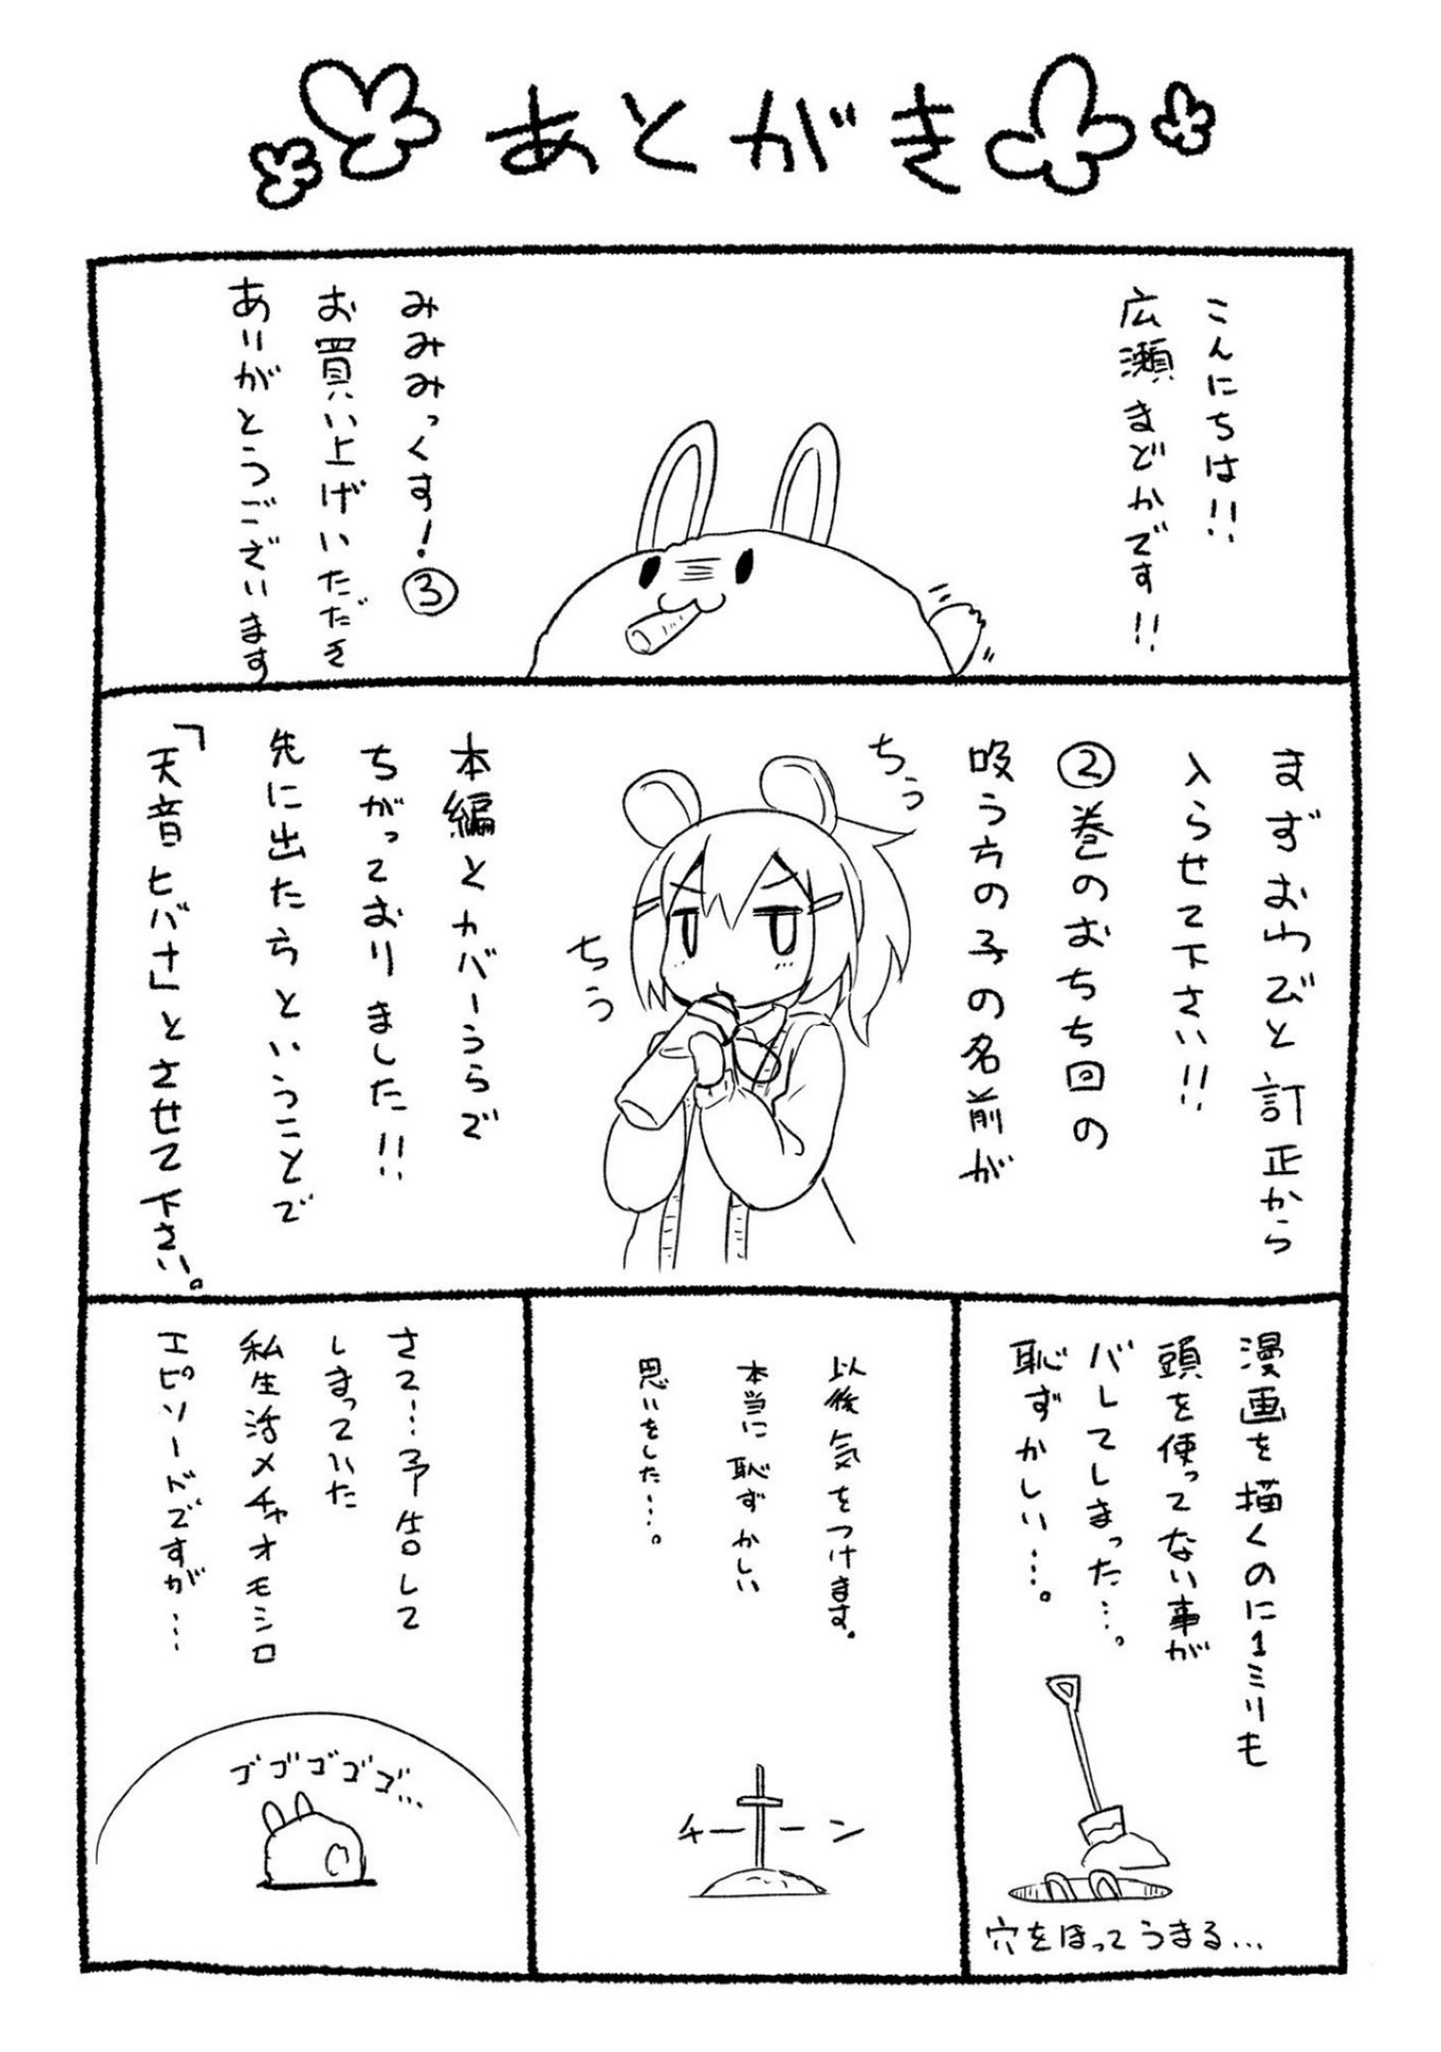 あとがき
こんにちは!!
広瀬まどかです!!
みみみっくす!③
お買い上げいただき
ありがとうございます
まずおわびと訂正から
入らせて下さい!!
②巻のおち回の
吸う方の子の名前が
ちぅ
ちぅ
本編とカバーうらで
ちがっておりました!!
先に出たちということで
「天音ヒバナ」とさせて下さい。
漫画を描くのに1ミリも
頭を使ってない事が
バレしてしまった…。
恥ずかしい…。
穴をほってうまる…
以後気をつけます。
本当に恥ずかしい
思いをした…。
チーーン
さて…予告して
しまっていた
私生活メチャオモシロ
エピソードですが…
ゴゴゴゴゴ…